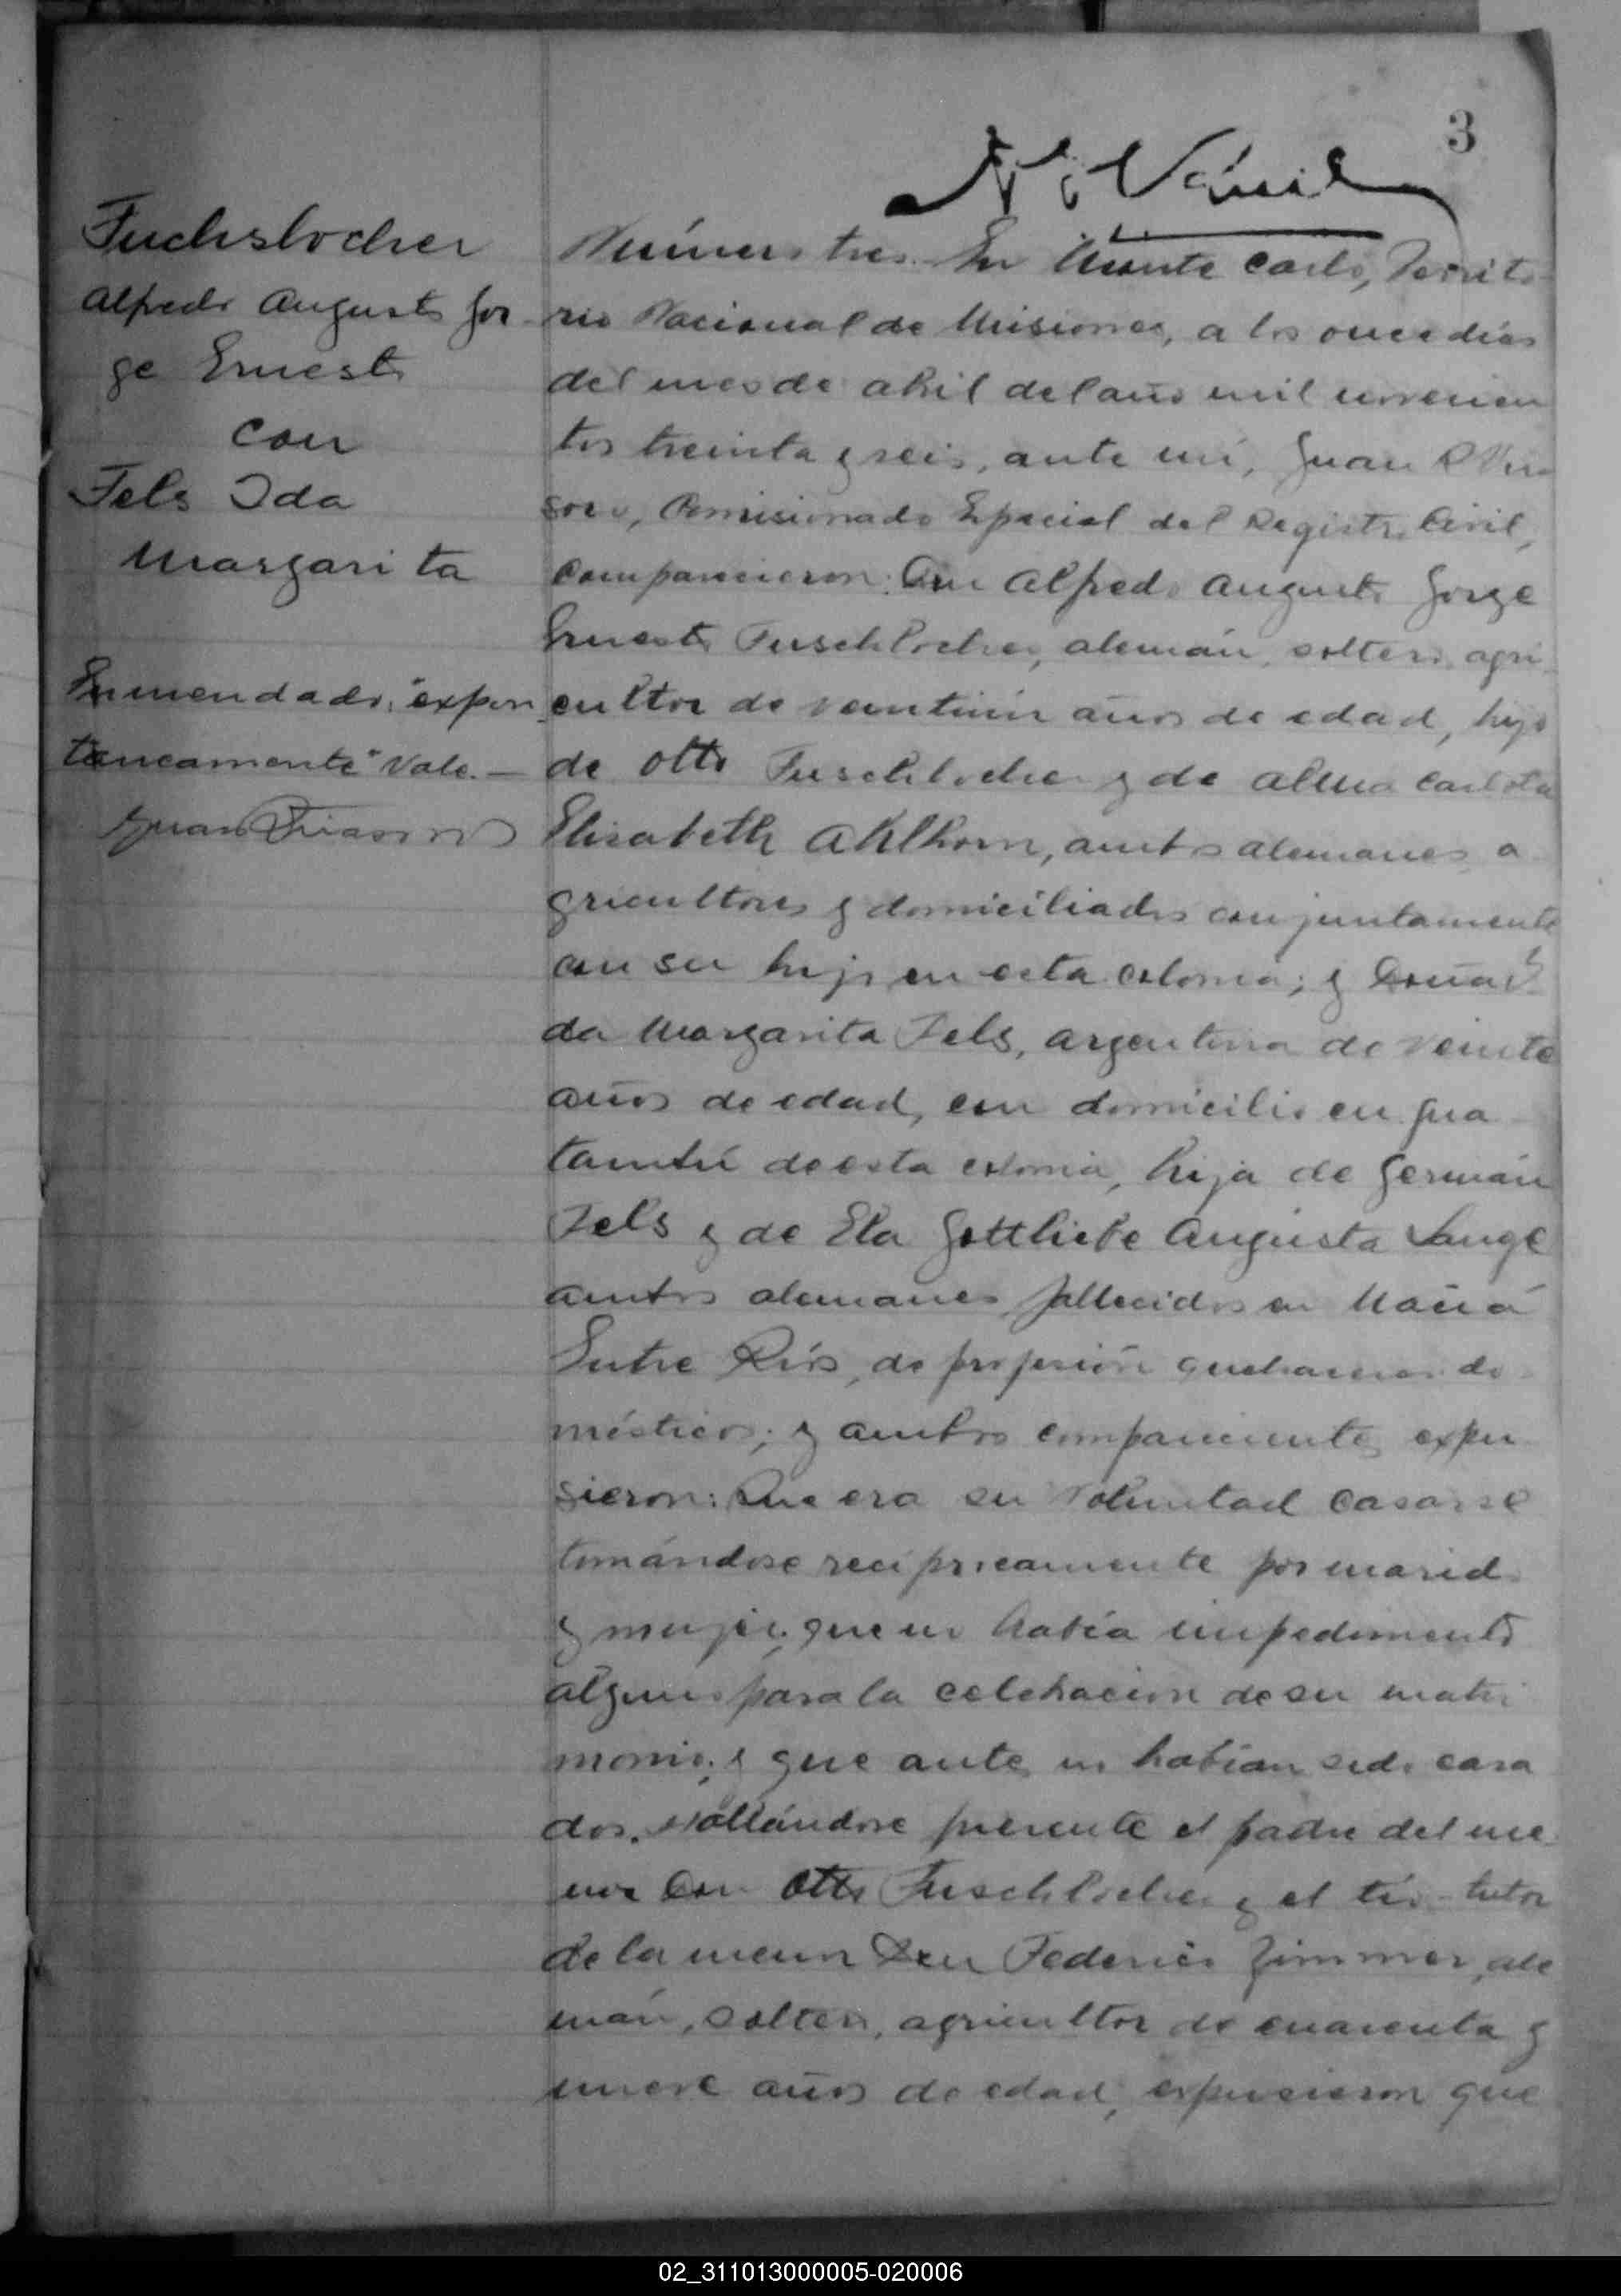 3
Fuchslocher
Alfredo Augusto Jor-
ge Ernesto
con
Fels Ida
Margarita
Enmendado: "expon
táneamente" Vale. —
Número tres. En Monte Carlo, Territo-
rio Nacional de Misiones, a los once días
del mes de abril del año mil novecien
tos treinta y seis, ante mí, Juan R
Comisionado Especial del Registro Civil,
comparecieron: Don Alfredo Augusto Jorge
Ernesto Fuschlocher, alemán, soltero, agri-
cultor de veintiún años de edad, hijo
de Otto Fuschlocher y de Alma Carlota
Elisabeth Ahlhorn, ambos alemanes, a
gricultores y domiciliados conjuntamente
con su hijo en esta colonia; y Doña I
da Margarita Fels, argentina de veinte
años de edad, con domicilio en Gua-
tambú de esta colonia, hija de Germán
Fels y de Ela Gottliebe Augusta Lange
ambos alemanes, fallecidos en Maciá
Entre Ríos, de profesión quehaceres do-
mésticos; y ambos comparecientes expu
sieron: Que era su voluntad casarse
tomándose recíprocamente por marido
y mujer; que no había impedimento
alguno para la celebración de su matri
monio; y que antes no habían sido casa
dos. Hallándose presente el padre del me
nor Don Otto Fuschlocher y el tío-tutor
de la menor Don Federico Zimmer, ale
mán, soltero, agricultor de cuarenta y
nueve años de edad, expusieron que
02_311013000005-020006